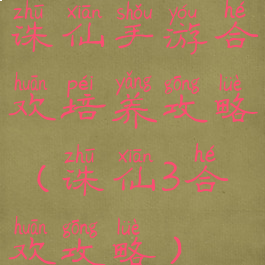 zhū xiān shǒu yóu hé
诛仙手游合
huān péi yǎng gōng lüè
欢培养攻略
zhū xiān hé
（诛仙3合
huān gōng lüè
欢攻略）